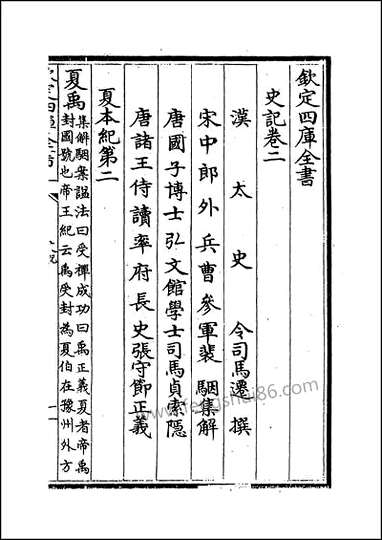 欽定四庫全書
史記卷二
漢太史令司馬遷撰
宋中郎外兵曹參軍裴駰集解
唐國子博士弘文館學士司馬貞索隱
唐諸王侍讀率府長史張守節正義
夏本紀第二
夏禹集解駰案諡法曰受禪成功曰禹正義夏者帝禹
封國號也帝王紀云禹受封為夏伯在豫州外方
www.fengshui86.com